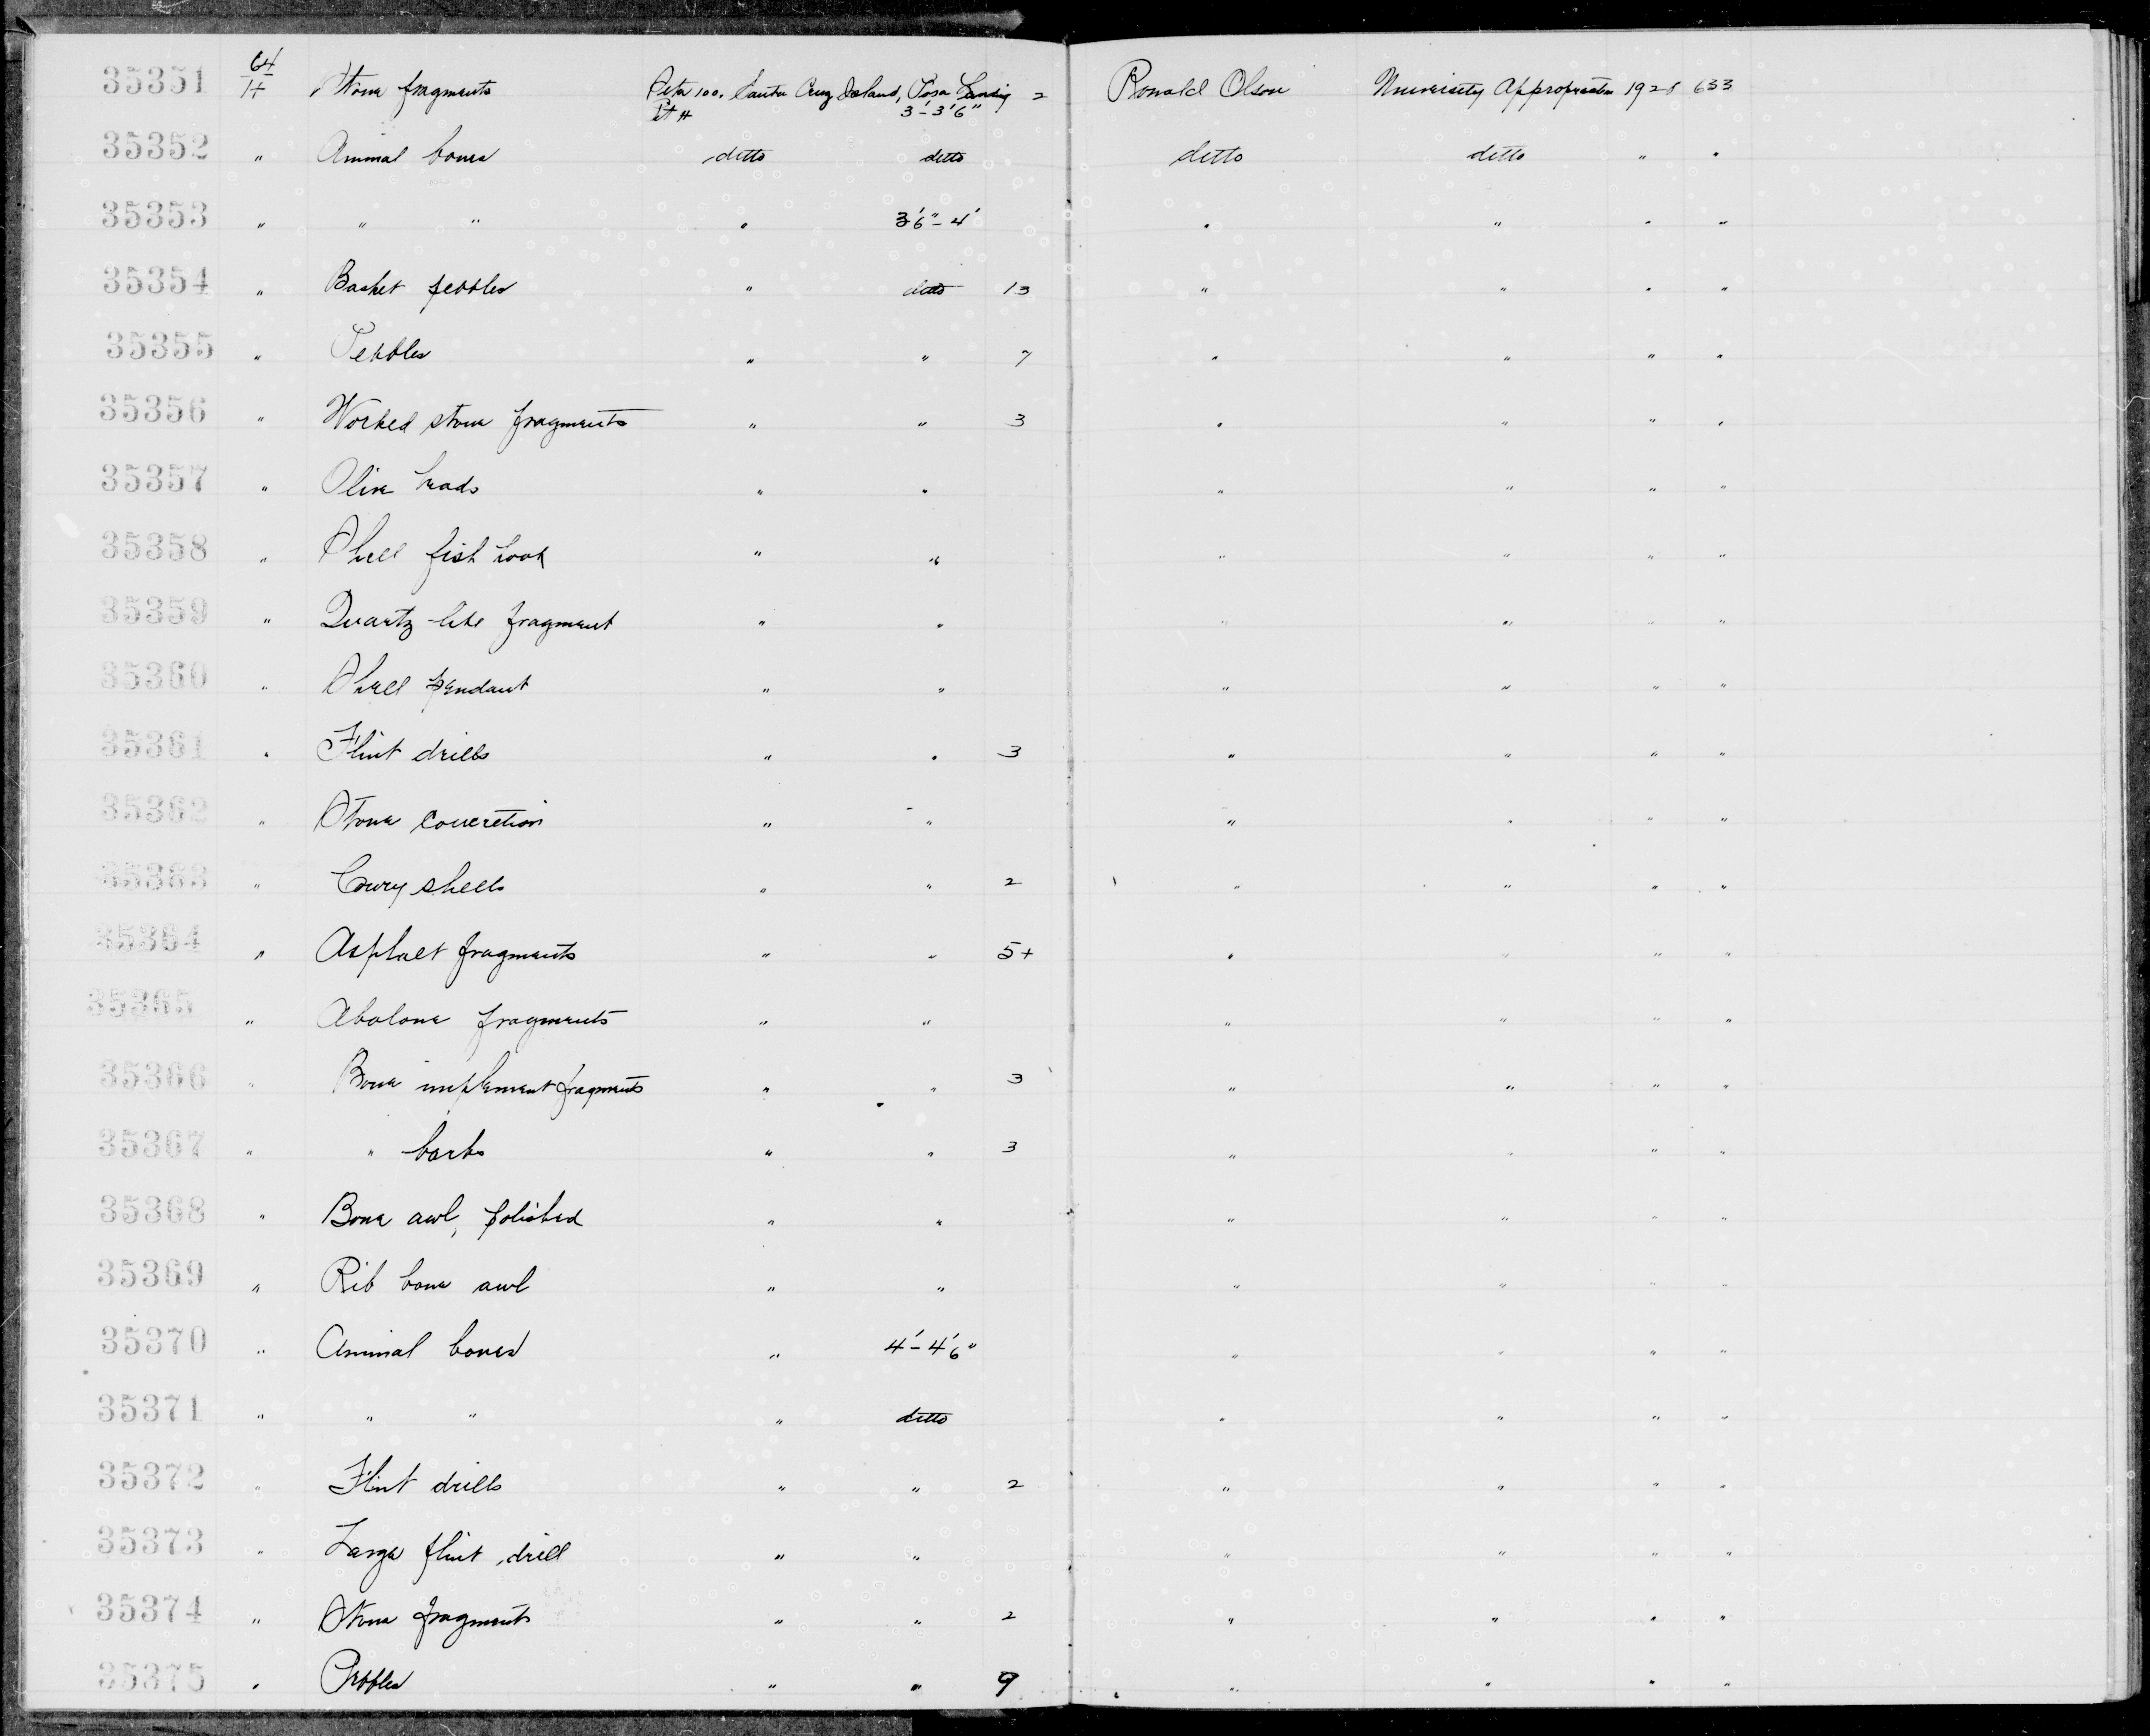 35351 64/1+ Stone fragments Site 100. Santa Cruz Island, Posa Landing 2 Ronald Olson University Appropriation 1928 633
Pit H 3'-3'6"
35352 " Animal bones ditto ditto ditto ditto " "
35353 " " " " 3'6"-4' " " " "
35354 " Basket pebbles " ditto 13 " " " "
35355 " Pebbles " " 7 " " " "
35356 " Worked stone fragments " " 3 " " " "
35357 " Olive beads " " " " " "
35358 " Shell fish hook " " " " " "
35359 " Quartz-like fragment " " " " " "
35360 " Shell pendant " " " " " "
35361 " Flint drills " " 3 " " " "
35362 " Stone concretion " " " " " "
35363 " Cowry shells " " 2 " " " "
35364 " Asphalt fragments " " 5+ " " " "
35365 " Abalone fragments " " " " " "
35366 " Bone implement fragments " " 3 " " " "
35367 " " barbs " " 3 " " " "
35368 " Bone awl, polished " " " " " "
35369 " Rib bone awl " " " " " "
35370 " Animal bones " 4'-4'6" " " " "
35371 " " " " ditto " " " "
35372 " Flint drills " " 2 " " " "
35373 " Large flint drill " " " " " "
35374 " Stone fragments " " 2 " " " "
35375 " Pebbles " " 9 " " " "